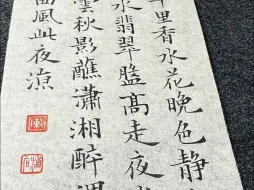 十里香水花晚色静
水翡翠盤高走夜
雲秋影蘸瀟湘醉
西風此夜涼